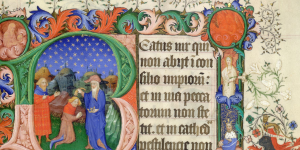 Beatus uir qui
non abijt i con
silio impiorū:
et in uia pecca
torum non ste
tit. et in cathed
pestilencie non